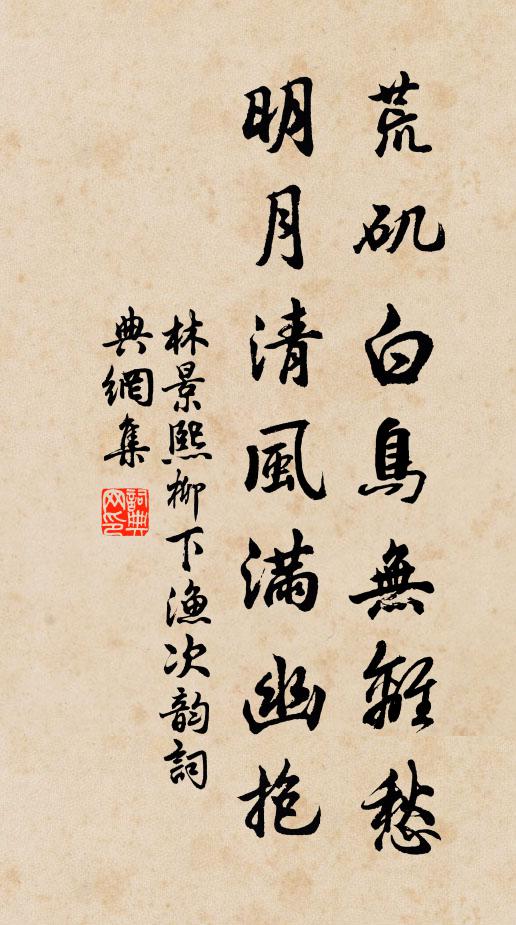 荒矶白鳥無離愁
明月清風滿幽抱
林景熙柳下漁次韵詞
典網集
詞典网印